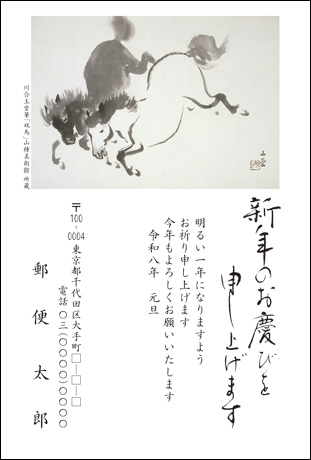 川合玉堂筆「双馬」山種美術館 所蔵
玉堂
新年のお慶びを
申し上げます
明るい一年になりますよう
お祈り申し上げます
今年もよろしくお願いいたします
令和八年 元旦
〒100-0004
東京都千代田区大手町□-□-□
電話 〇三(〇〇〇〇)〇〇〇〇
郵便 太郎